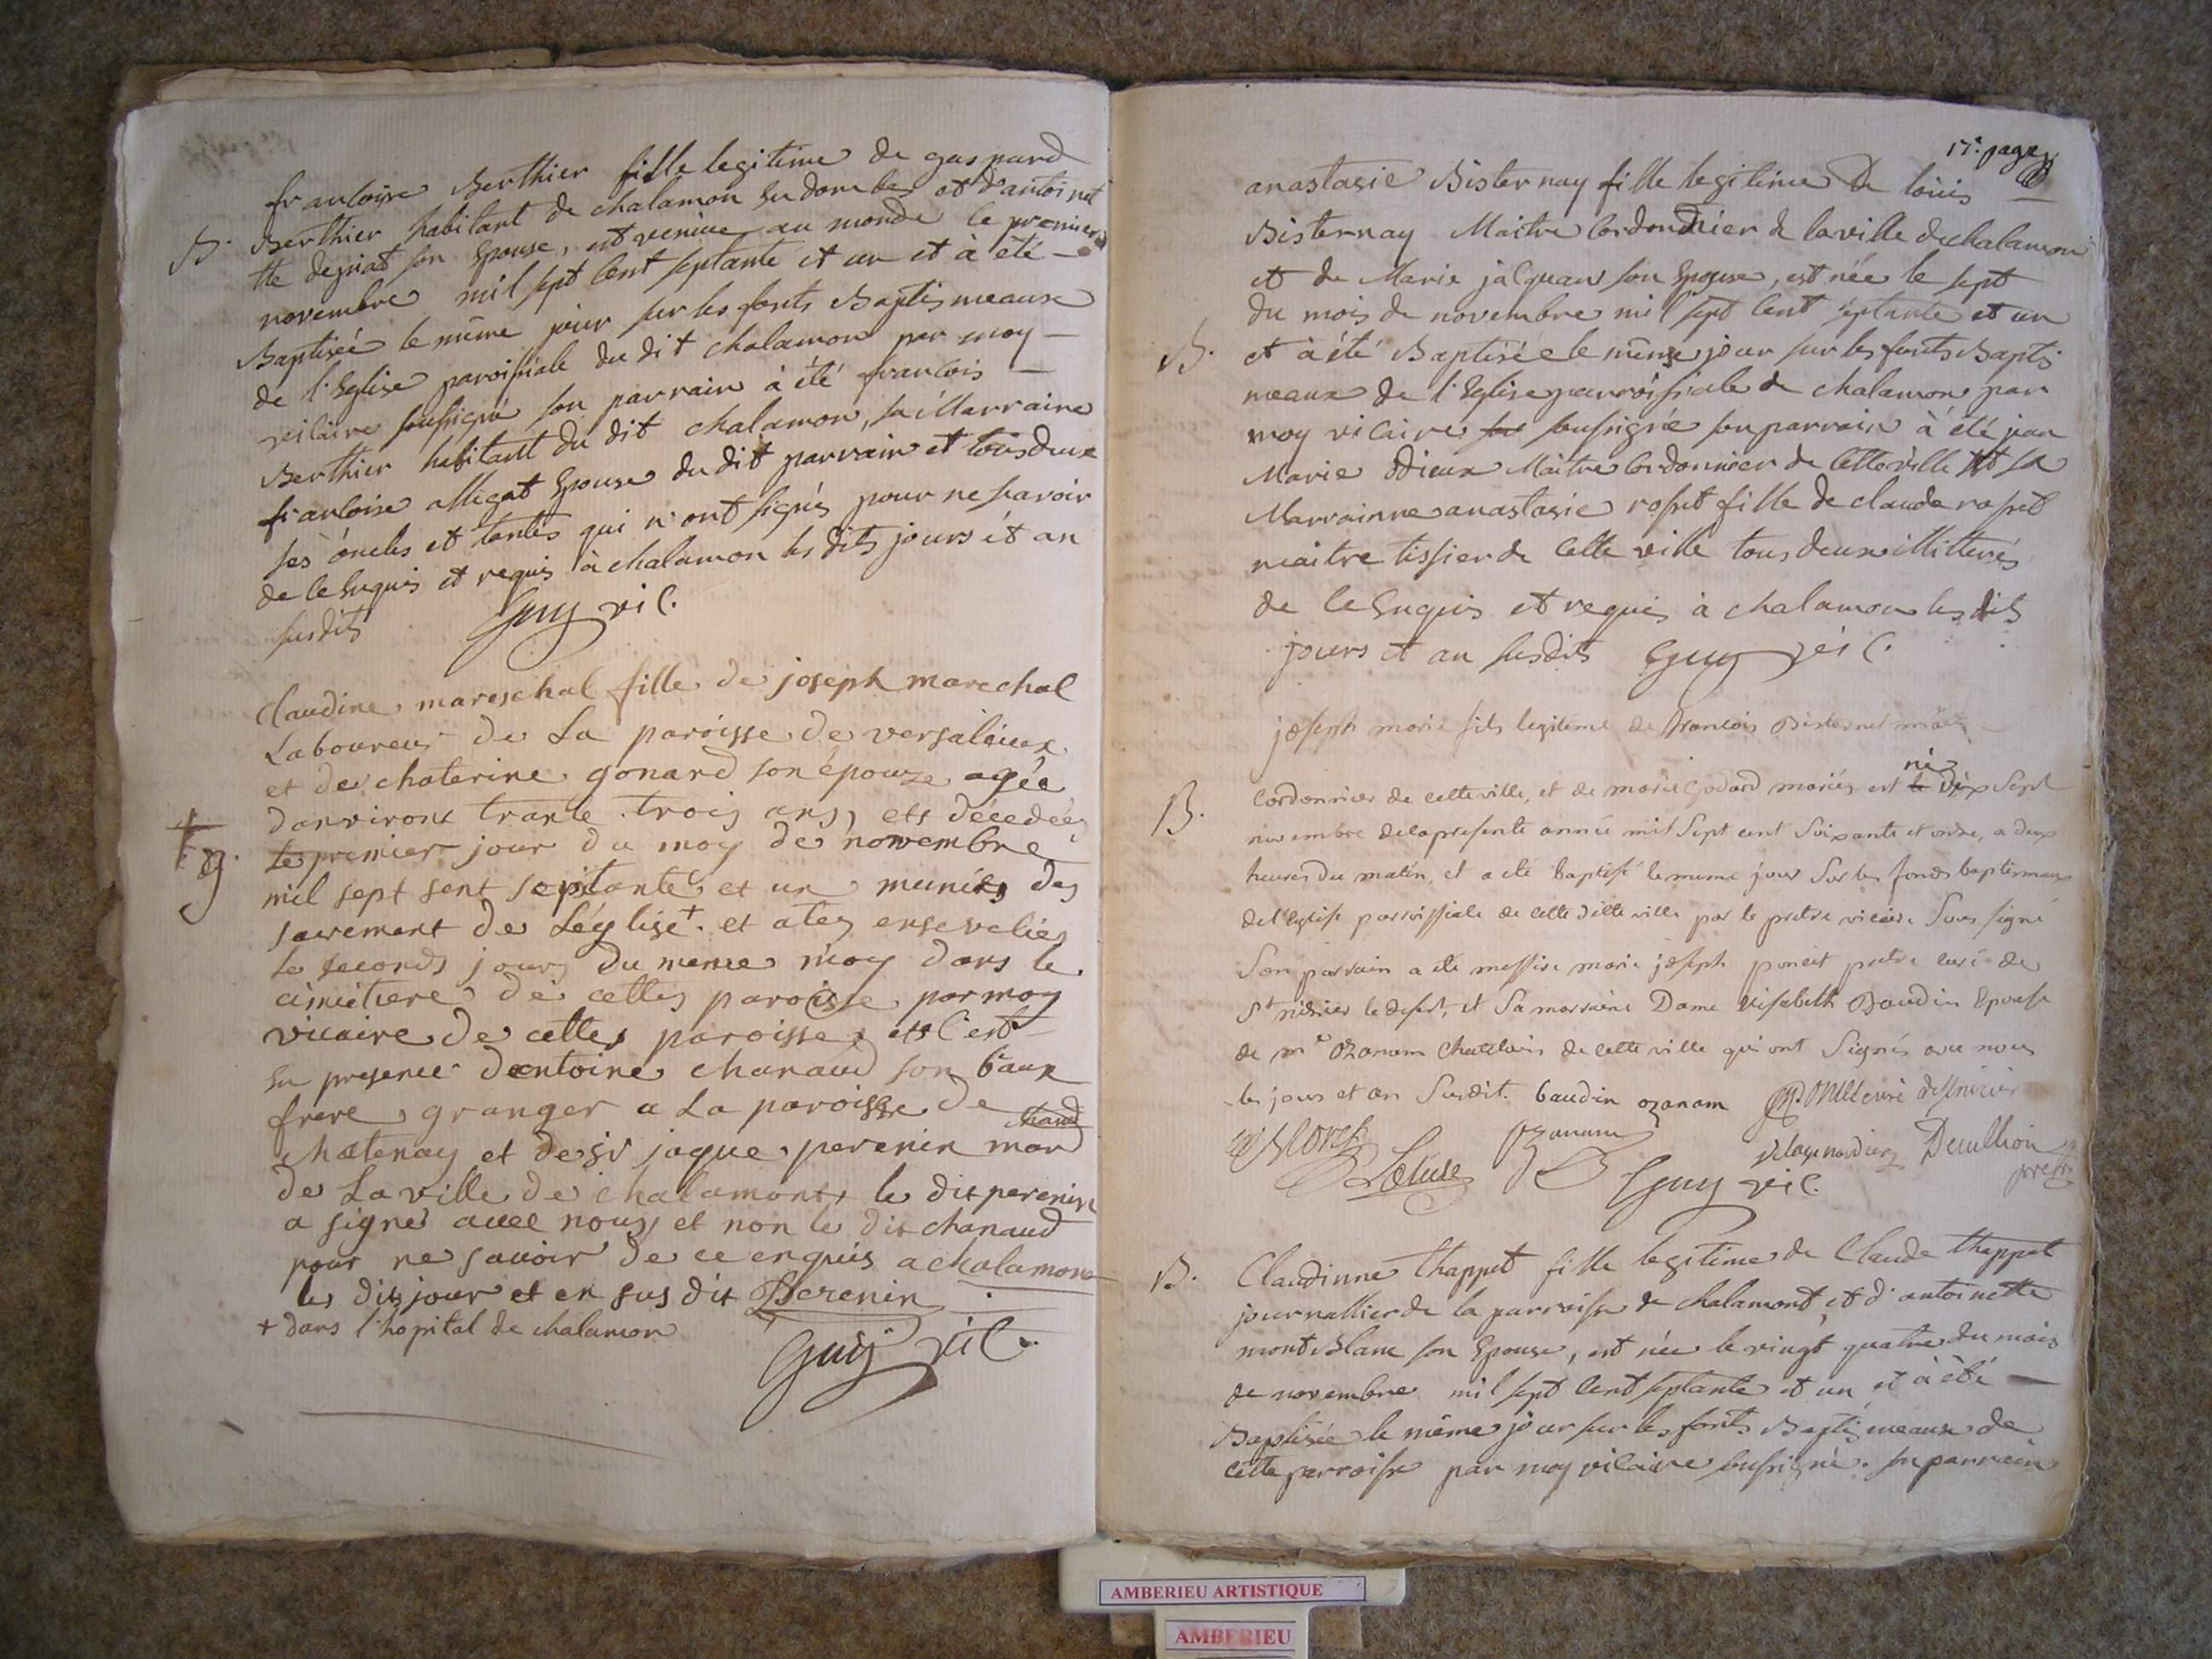 francoise Berthier fille legitime de gaspard
B. Berthier habitant de chalamon En dombes et d'antoinet
tte degriat son Epouse, est venüe au monde le premier
novembre mil sept cent septante et un et à été
Baptisée le même jour sur les fonts Baptismeaux
de l'Eglise paroissiale du dit chalamon par moy
vicaire soussigné son parrain à été francois
Berthier habitant du dit chalamon, sa Marraine
francoise alligat Epouse du dit parrain et tous deux
ses oncles et tantes qui n'ont signés pour ne savoir
de ce Enquis et requis à chalamon les dits jours et an
susdits Guy vic.
Claudine mareschal fille de joseph marechal
Laboureur de La paroisse de versalieux
et de chaterine gonard son épouze agée
danviront trante trois ans, ets décedée
le premier jour du moy de novembre
mil sept sent sepitante et un munies des
sacrement de Léglise + et atey ensevelies
le seconds jours du meme moy dans le
cimetiere de cettes paroisse par moy
vicaire de cettes paroisses ets c'est
En presence dantoine chanaud son baux
frere granger a La paroisse de
chatenay et de sr jaque perenin marchand
de La ville de chalamonts le dit perenin
a signé avec nous et non le dit chanaud
pour ne savoir de ce enquis a chalamon
les dits jour et en sus dit Perenin
+ dans l'hopital de chalamon
Guy vic.
17e. page
anastasie Bisternay fille legitime De loüis
Bisternay Maitre Cordonnier de la ville de chalamon
et de Marie jacquan son Epouse, est née le sept
du mois de novembre mil sept cent septante et un
B. et à été Baptisée le même jour sur les fonts Baptis
meaux de l'Eglise parroissiale de chalamon par
moy vicaire soussignée son parrain à été jean
Marie Dieux Maitre Cordonnier de cette ville et sa
Marrainne anastasie roset fille de claude roset
maitre tissier de cette ville tous deux illitterés
de ce Enquis et requis à chalamon les dits
jours et an susdits Guy vic.
joseph marie fils legitime de francois Bisternai maitre
B. Cordonnier de cette ville, et de marie godard mariés est né le dix Sept
novembre de la presente année mil Sept cent Soixante et onze, a deux
heures du matin, et a eté baptisé le meme jour Sur les fonds baptismaux
de l'eglise parroissiale de cette ditte ville par le pretre vicaire Sous signé
Son parrain a eté messire marie joseph poncet pretre curé de
St nisier le desert, et Sa marraine Dame Elisabeth Baudin Epouse
de mre ozanam Chatelain de cette ville qui ont Signés avec nous
les jours et an Susdit. baudin ozanam
ozanam Guy vic. Decullion
pretre
B. Claudinne Chappet fille legitime de Claude Chappet
journallier de la parroisse de chalamont, et d'antoinette
mont Blanc son Epouse, est née le vingt quatre du mois
de novembre mil sept cent septante et un, et à été
Baptisée le même jour sur les fonts Baptismeaux de
cette parroisse par moy vicaire soussigné. son parrain
AMBERIEU ARTISTIQUE
AMBERIEU